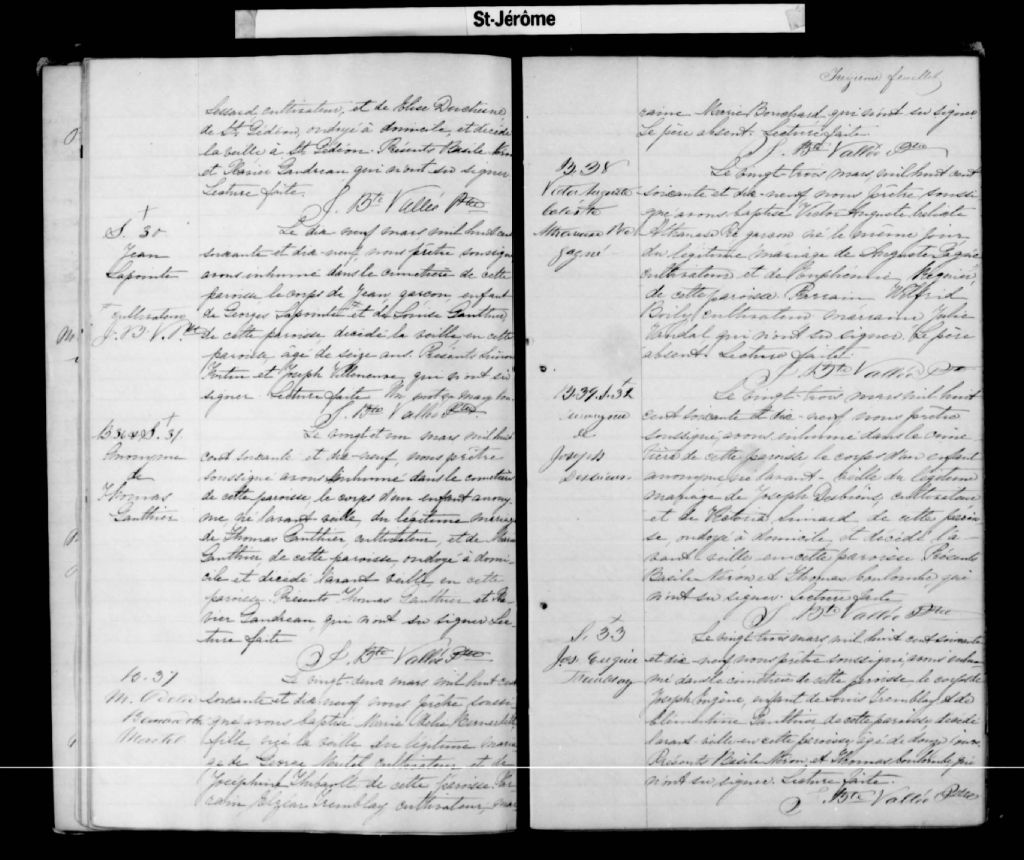 St-Jérôme
Lessard cultivateur, et de Elise Duchesne
de St Gédéon, ondoyé à domicile, et décédé
la veille à St Gédéon. Présents Basile
et Gaudreau qui n'ont su signer
Lecture faite.
J. Bte Vallée Ptre
S. 30
Jean
Lapointe
Le dix neuf mars mil huit cent
soixante et dix-neuf, nous prêtre soussigné
avons inhumé dans le cimetière de cette
paroisse le corps de Jean, garçon, enfant
cultivateur
J. B. V. Ptre
de Georges Lapointe et de Louise Gauthier
de cette paroisse, décédé la veille en cette
paroisse âgé de seize ans. Présents
Fortin et Joseph Villeneuve, qui n'ont su
signer. Lecture faite.
J. Bte Vallée Ptre
S. 31
Anonyme
de
Thomas
Gauthier
Le vingt et un mars mil huit
cent soixante et dix-neuf, nous prêtre
soussigné avons inhumé dans le cimetière
de cette paroisse, le corps d'un enfant anony-
me, né l'avant veille, du légitime mariage
de Thomas Gauthier cultivateur, et de
Gauthier, de cette paroisse, ondoyé à domi-
cile et décédé l'avant veille, en cette
paroisse. Présents Thomas Gauthier et
Gaudreau, qui n'ont su signer Lec-
ture faite
J. Bte Vallée Ptre
B. 37
M.
Le vingt-deux mars mil huit cent
soixante et dix-neuf nous prêtre soussi-
gné avons baptisé Marie
fille, née la veille du légitime maria-
ge de cultivateur et de
Joséphine Thibault de cette paroisse. Par-
rain Elzéar Tremblay cultivateur, mar-
feuillet
raine Marie Bouchard qui n'ont su signer
Le père absent. Lecture faite.
J. Bte Vallée Ptre
B. 38
Victor Auguste
Gagné
Le vingt-trois mars, mil huit cent
soixante et dix-neuf nous prêtre soussi-
gné avons baptisé Victor Auguste
garçon né le même jour
du légitime mariage de Auguste Gagné
cultivateur et de
de cette paroisse Parrain Wilfrid
Boily cultivateur marraine Julie
Vandal qui n'ont su signer. Le père
absent. Lecture faite.
J. Bte Vallée Ptre
B. 39 S. 32
Anonyme
de
Joseph
Desbiens
Le vingt-trois mars mil huit
cent soixante et dix-neuf nous prêtre
soussigné, avons inhumé dans le cime-
tière de cette paroisse le corps d'un enfant
anonyme né l'avant-veille du légitime
mariage de Joseph Desbiens, cultivateur
et de Simard, de cette parois-
se, ondoyé à domicile et décédé l'a-
vant veille en cette paroisse Présents
Basile Néron et Thomas Coulombe qui
n'ont su signer. Lecture faite
J. Bte Vallée Ptre
S. 33
Jos. Eugène
Tremblay
Le vingt trois mars mil huit cent soixante
et dix-neuf nous prêtre soussigné avons inhu-
mé dans le cimetière de cette paroisse le corps de
Joseph Eugène, enfant de Louis Tremblay et de
Clémentine Gauthier de cette paroisse décédé
l'avant-veille en cette paroisse, âgé de
Présents Basile Néron et Thomas Coulombe qui
n'ont su signer. Lecture faite.
J. Bte Vallée Ptre